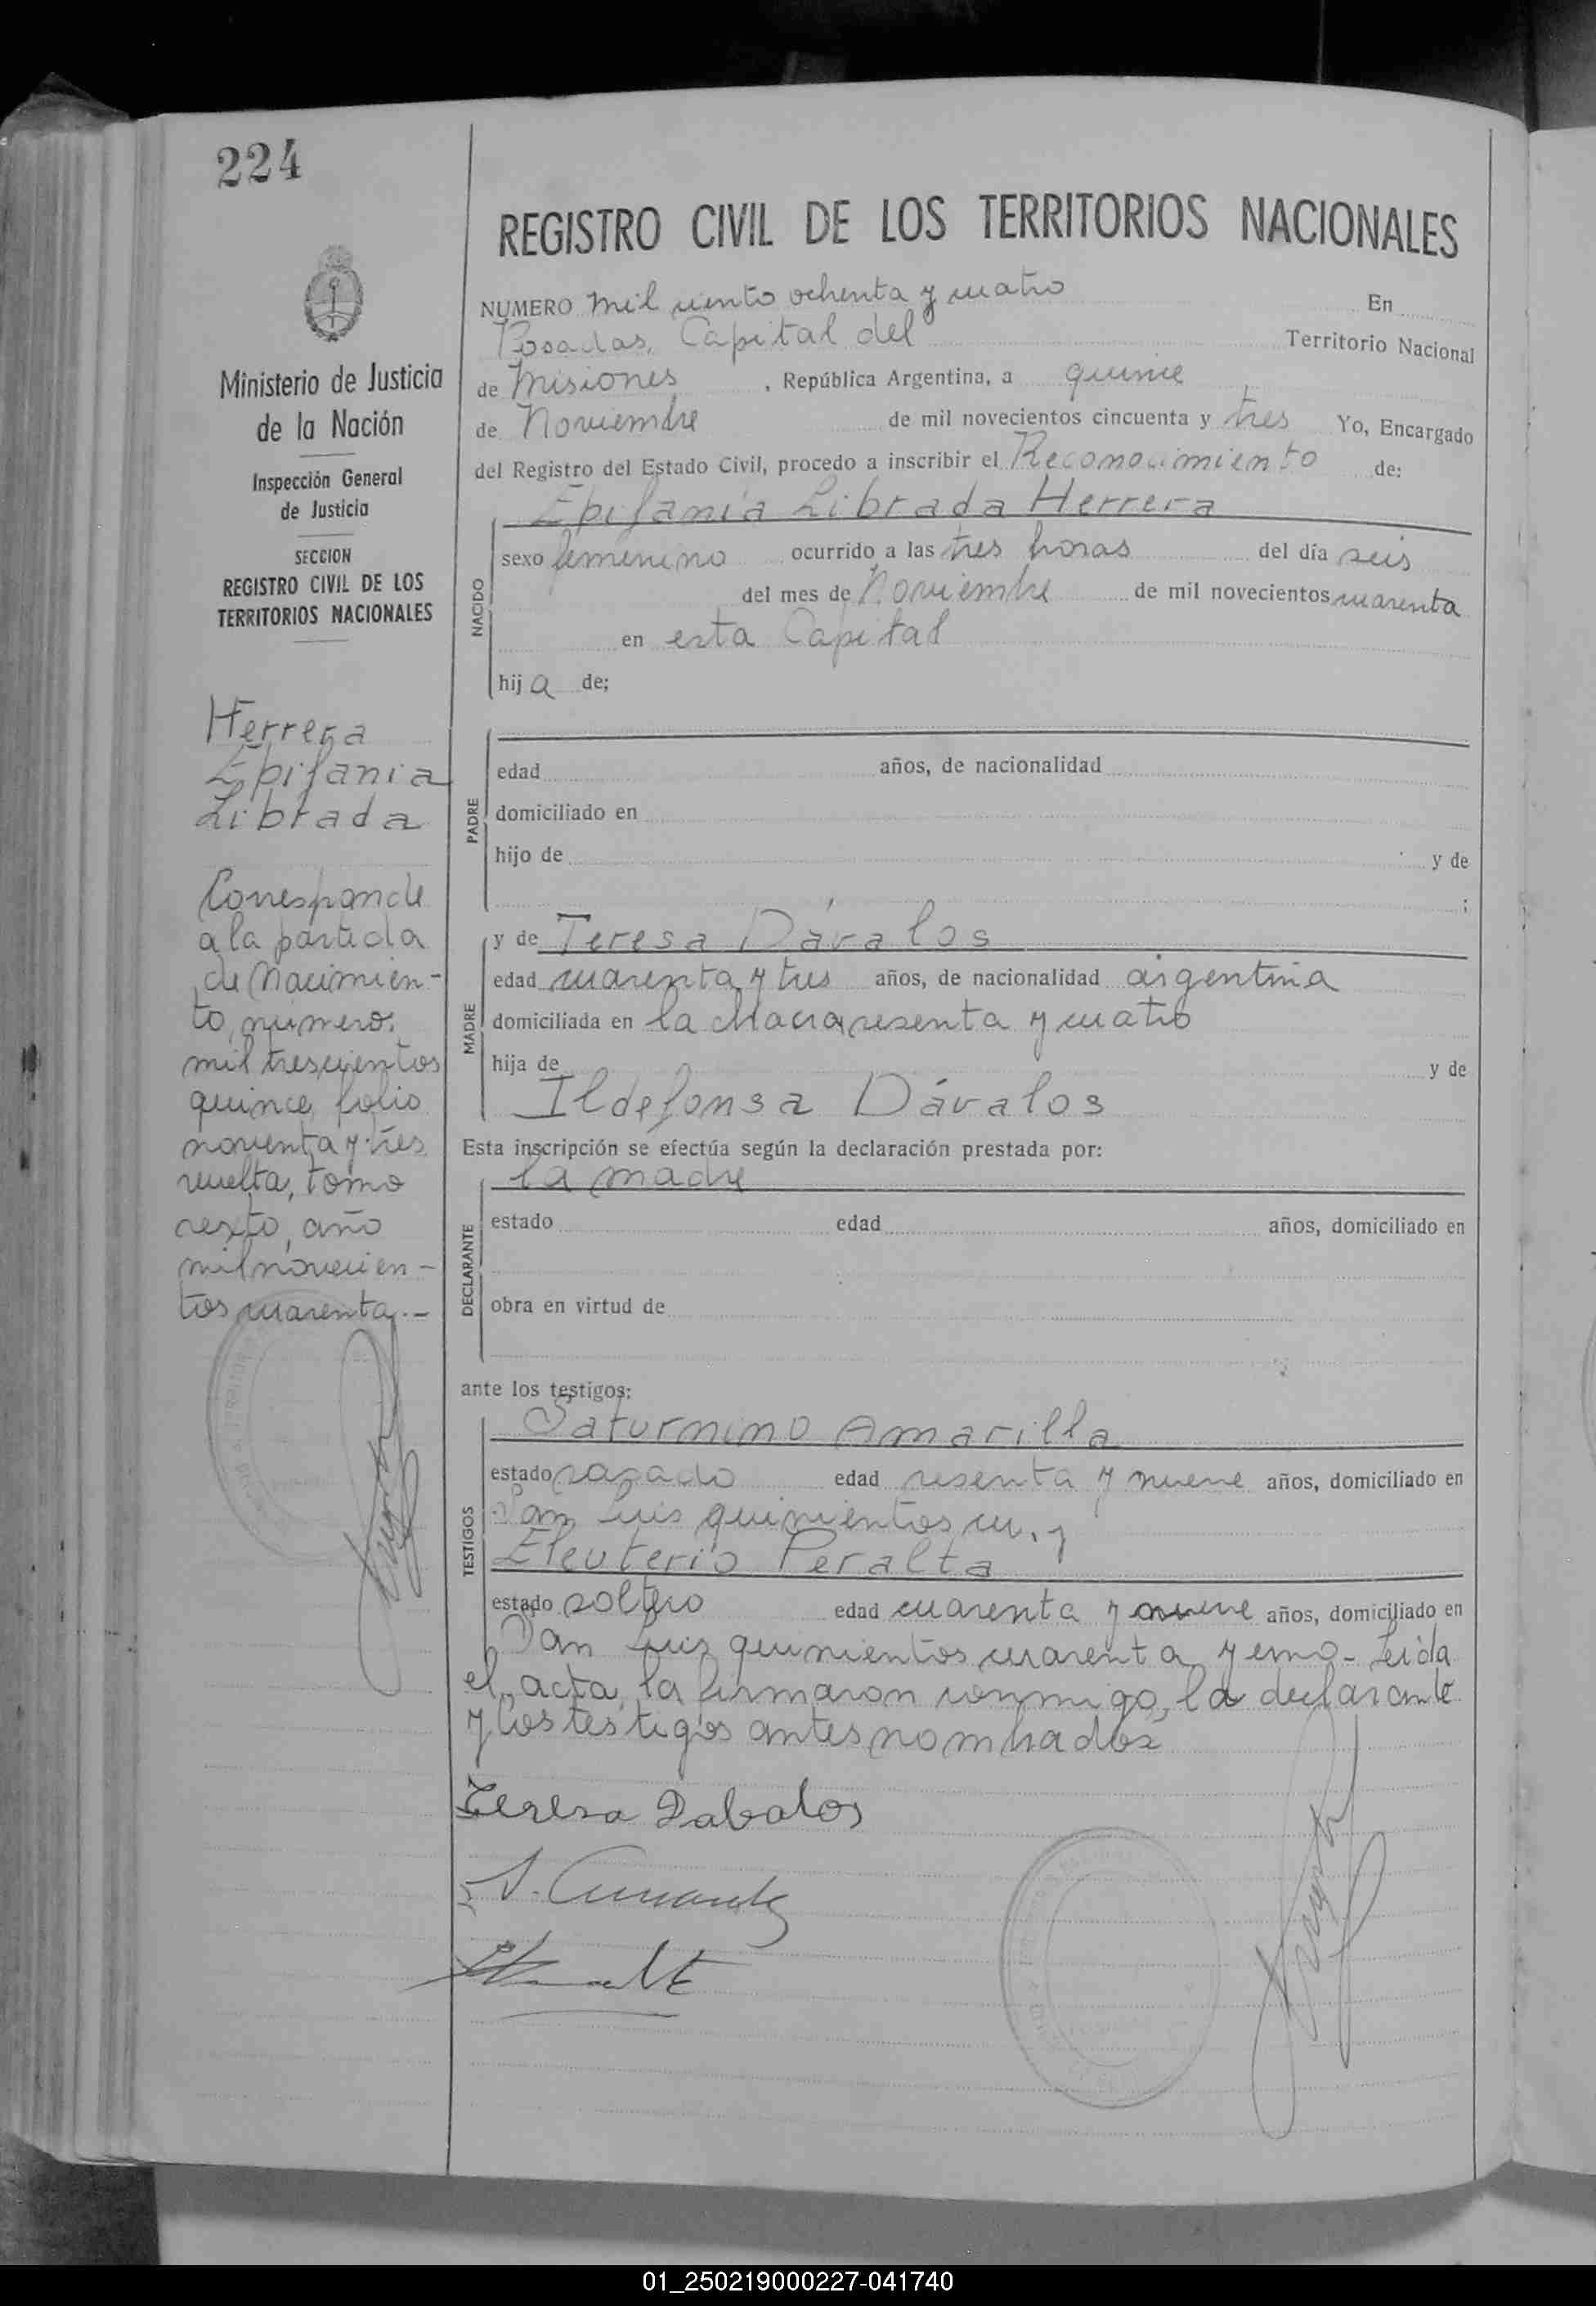 224
REGISTRO CIVIL DE LOS TERRITORIOS NACIONALES
NUMERO mil ciento ochenta y cuatro En
Posadas, Capital del Territorio Nacional
de Misiones, República Argentina, a quince
de Noviembre de mil novecientos cincuenta y tres Yo, Encargado
del Registro del Estado Civil, procedo a inscribir el Reconocimiento de:
Epifania Librada Herrera
NACIDO
sexo femenino ocurrido a las tres horas del día seis
del mes de Noviembre de mil novecientos cuarenta
en esta Capital
hija de;
PADRE
edad años, de nacionalidad
domiciliado en
hijo de y de
;
MADRE
y de Teresa Dávalos
edad cuarenta y tres años, de nacionalidad argentina
domiciliada en la Chacra sesenta y cuatro
hija de y de
Ildefonsa Dávalos
Esta inscripción se efectúa según la declaración prestada por:
la madre
DECLARANTE
estado edad años, domiciliado en
obra en virtud de
ante los testigos:
TESTIGOS
Saturnino Amarilla
estado casado edad sesenta y nueve años, domiciliado en
San Luis quinientos cu. y
Eleuterio Peralta
estado soltero edad cuarenta y nueve años, domiciliado en
San Luis quinientos cuarenta y uno - Leída
el acta, la firmaron conmigo, la declarante
y los testigos antes nombrados
Teresa Dabalos
Ministerio de Justicia
de la Nación
Inspección General
de Justicia
SECCION
REGISTRO CIVIL DE LOS
TERRITORIOS NACIONALES
Herrera
Epifania
Librada
Corresponde
a la partida
de Nacimien-
to, número,
mil trescientos
quince, folio
noventa y tres
vuelta, tomo
sexto, año
mil novecien-
tos cuarenta.-
01_250219000227-041740